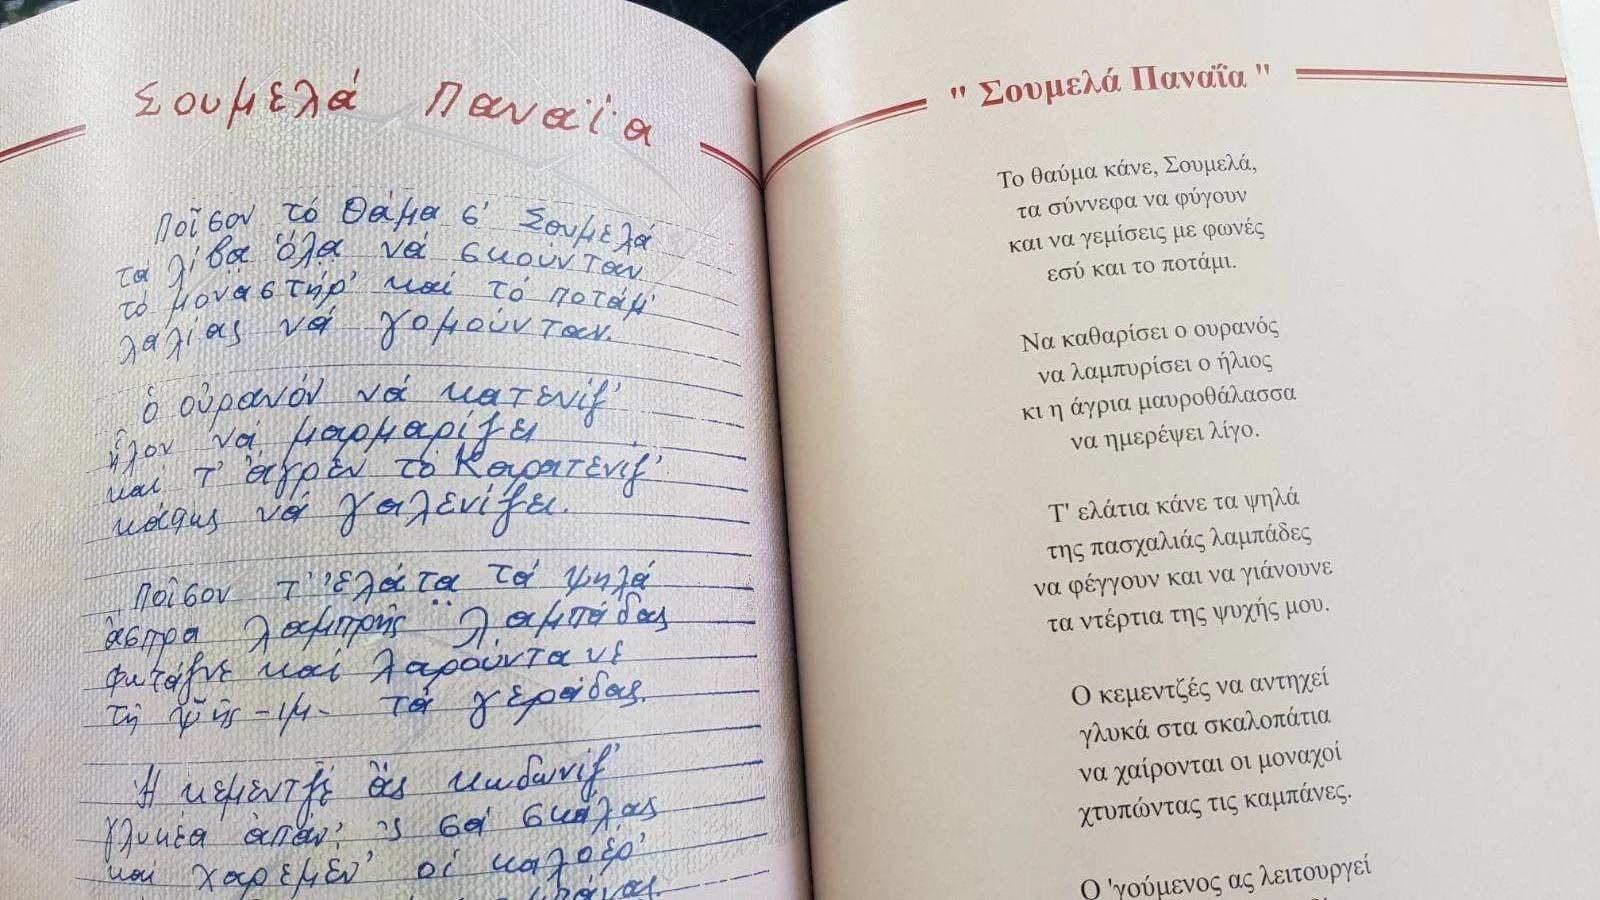 Σουμελά Παναΐα
Ποῖσον τό θάμα σ' Σουμελά
τά λίβα ὅλα νά σκούνταν
τό μοναστήρ' καί τό ποτάμ'
λαλίας νά γομούνταν.
ὁ οὐρανόν νά κατενίζ'
ἥλον νά μαρμαρίζει
καί τ' ἄγρεν τό Καρατενίζ'
νά γαλενίζει.
Ποῖσον τ' ἐλάτα τά ψηλά
ἄσπρα λαμπρῆς λαμπάδας
φωτάζνε καί λαρούντανε
τῆ ψῆς -ιμ- τά γεράδας.
Ἡ κεμεντζέ ἄς κωδωνίζ'
γλυκέα ἀπάν' 'ς σά σκάλας
καί χαρεμέν' οἱ καλοέρ'
" Σουμελά Παναΐα "
Το θαύμα κάνε, Σουμελά,
τα σύννεφα να φύγουν
και να γεμίσεις με φωνές
εσύ και το ποτάμι.
Να καθαρίσει ο ουρανός
να λαμπυρίσει ο ήλιος
κι η άγρια μαυροθάλασσα
να ημερέψει λίγο.
Τ' ελάτια κάνε τα ψηλά
της πασχαλιάς λαμπάδες
να φέγγουν και να γιάνουνε
τα ντέρτια της ψυχής μου.
Ο κεμεντζές να αντηχεί
γλυκά στα σκαλοπάτια
να χαίρονται οι μοναχοί
χτυπώντας τις καμπάνες.
Ο 'γούμενος ας λειτουργεί